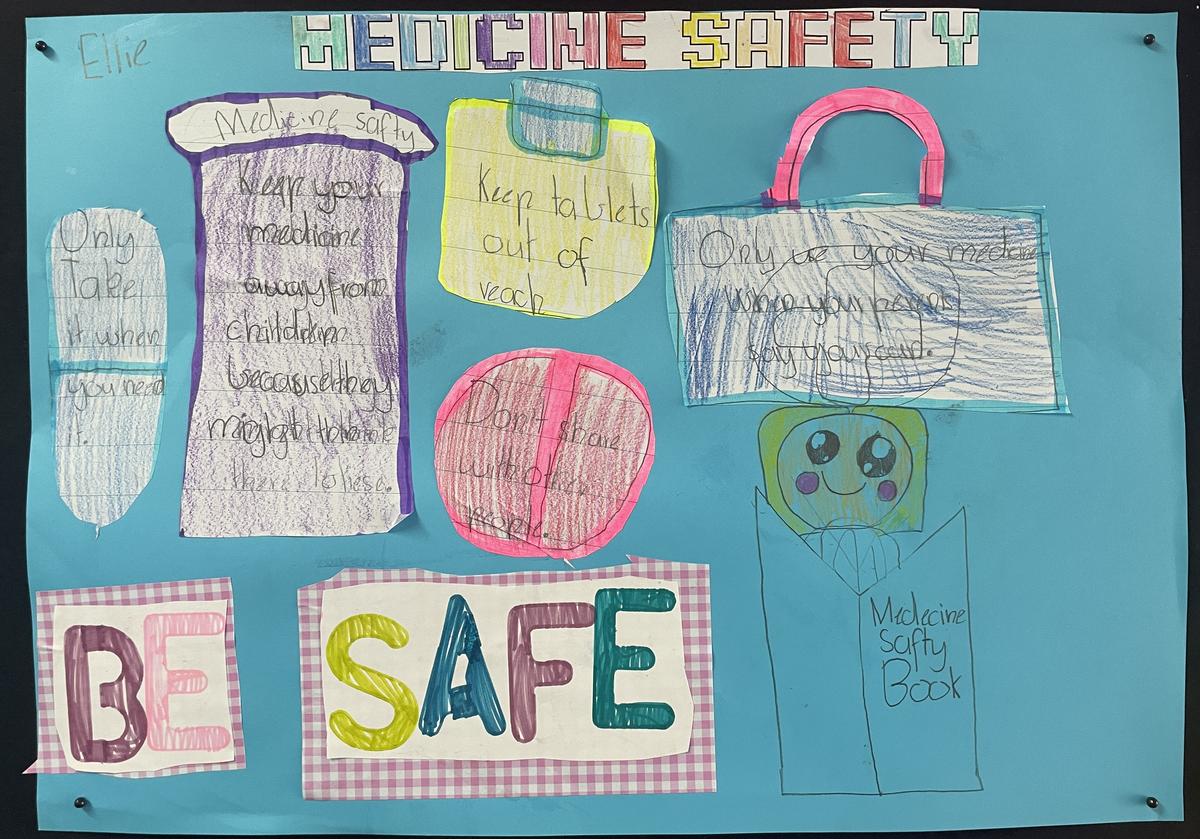 MEDICINE SAFETY
Ellie
Only
Take
it when
you need
it.
Medicine safty
Keep your
medicine
away from
children
because they
might think
there
Keep tablets
out of
reach
Don't share
with other
people.
Only use your
when your parents
say you can.
BE
SAFE
Medecine
safty
Book